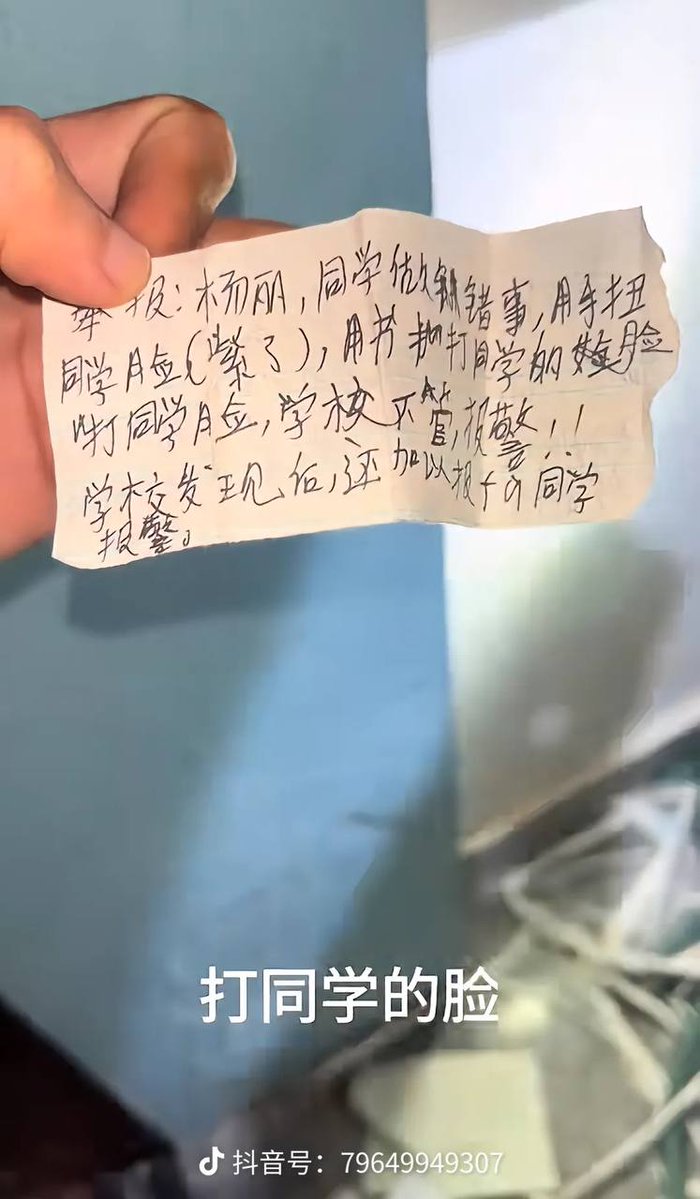 举报：杨丽，同学做错事，用手扭
同学脸（紫了），用书打同学的脸
打同学脸，学校不管，报警！！
学校发现后，还加以报复同学
报警。
打同学的脸
抖音号：79649949307